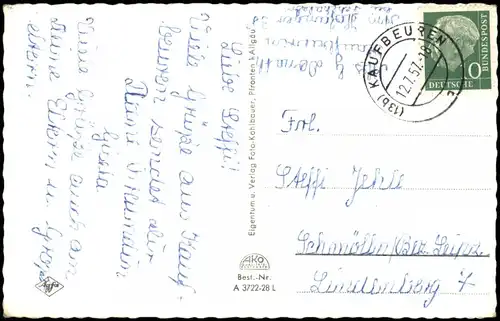 Liebe Steffi!
Viele Grüße aus Kauf-
beuren sendet Dir
Deine Freundin
Gisela
Viele Grüße auch an
Deine Eltern u. Großeltern.
Eigentum u. Verlag Foto-Kohlbauer, Pfronten i. Allgäu
AKO
Best.-Nr.
A 3722-28 L
Agfa
KAUFBEUREN
(13b)
12.7.57
DEUTSCHE
BUNDESPOST
10
Frl.
Steffi Jehle
Schmölln/Bez. Leipz.
Lindenberg 7